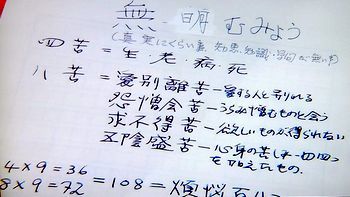 無明 むみょう
(真実にくらい事、知恵・知識・学問が無い事)
四苦 = 生・老・病・死
八苦 = 愛別離苦 − 愛する人と別れる
怨憎会苦 − うらみ憎むものと会う
求不得苦 − 欲しいものが得られない
五陰盛苦 − 心身の苦しみ 四四
を加えたもの.
4×9=36
8×9=72 =108= 煩悩百八